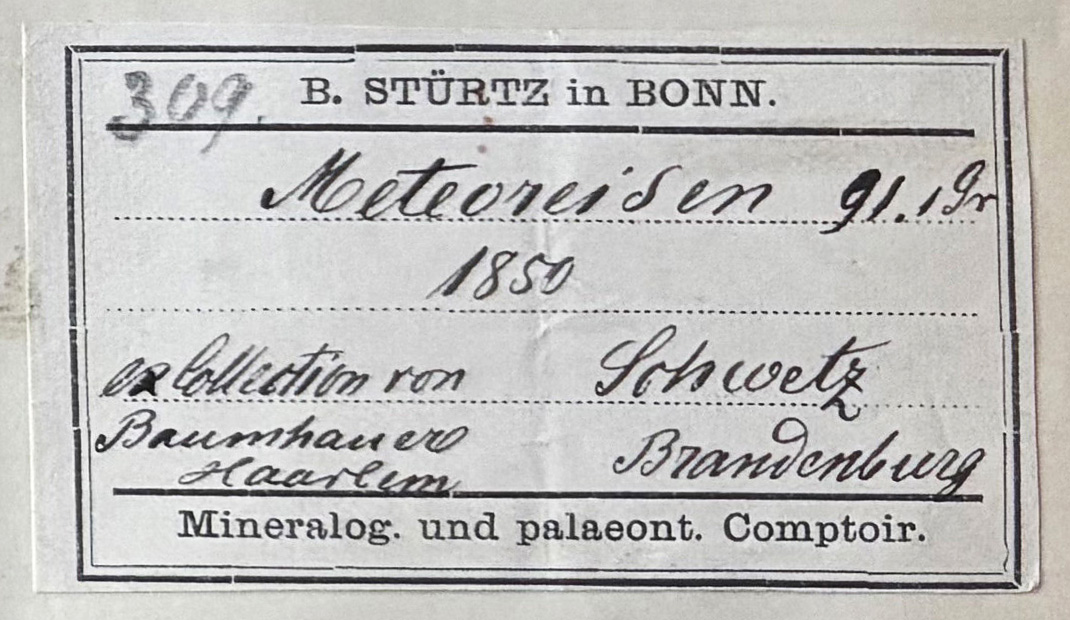 309.
B. STÜRTZ in BONN.
Meteoreisen 91.1 Gr
1850
ex Collection von Schwetz
Baumhauer Brandenburg
Haarlem
Mineralog. und palaeont. Comptoir.